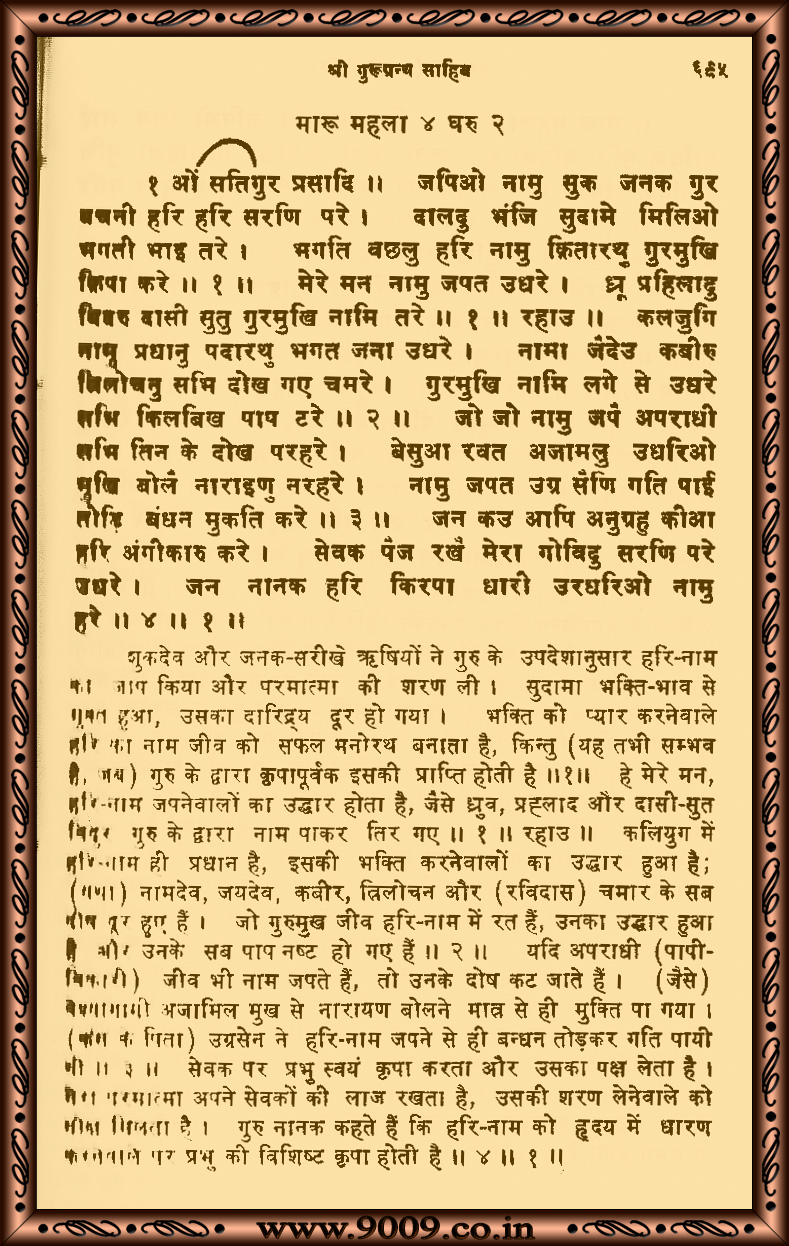 श्री गुरूग्रन्थ साहिब ६९५
मारू महला ४ घरु २
१ ओं सतिगुर प्रसादि ॥ जपिओ नामु सुक जनक गुर
बचनी हरि हरि सरणि परे । दालदु भंजि सुदामे मिलिओ
भगती भाइ तरे । भगति वछलु हरि नामु क्रितारथु गुरमुखि
क्रिपा करे ॥ १ ॥ मेरे मन नामु जपत उधरे । ध्रू प्रहिलादु
बिदरु दासी सुतु गुरमुखि नामि तरे ॥ १ ॥ रहाउ ॥ कलजुगि
नामु प्रधानु पदारथु भगत जना उधरे । नामा जैदेउ कबीरु
त्रिलोचनु सभि दोख गए चमरे । गुरमुखि नामि लगे से उधरे
सभि किलबिख पाप टरे ॥ २ ॥ जो जो नामु जपै अपराधी
सभि तिन के दोख परहरे । बेसुआ रवत अजामलु उधरिओ
मुखि बोलै नाराइणु नरहरे । नामु जपत उग्र सैणि गति पाई
तोड़ि बंधन मुकति करे ॥ ३ ॥ जन कउ आपि अनुग्रहु कीआ
हरि अंगीकारु करे । सेवक पैज रखै मेरा गोविदु सरणि परे
उधरे । जन नानक हरि किरपा धारी उरधरिओ नामु
हरे ॥ ४ ॥ १ ॥
शुकदेव और जनक-सरीखे ऋषियों ने गुरु के उपदेशानुसार हरि-नाम
का जाप किया और परमात्मा की शरण ली । सुदामा भक्ति-भाव से
मुक्त हुआ, उसका दारिद्र्य दूर हो गया । भक्ति को प्यार करनेवाले
हरि का नाम जीव को सफल मनोरथ बनाता है, किन्तु (यह तभी सम्भव
है, जब) गुरु के द्वारा कृपापूर्वक इसकी प्राप्ति होती है ॥१॥ हे मेरे मन,
हरि-नाम जपनेवालों का उद्धार होता है, जैसे ध्रुव, प्रह्लाद और दासी-सुत
बिदुर गुरु के द्वारा नाम पाकर तिर गए ॥ १ ॥ रहाउ ॥ कलियुग में
हरि-नाम ही प्रधान है, इसकी भक्ति करनेवालों का उद्धार हुआ है;
(यथा) नामदेव, जयदेव, कबीर, त्रिलोचन और (रविदास) चमार के सब
दोष दूर हुए हैं । जो गुरुमुख जीव हरि-नाम में रत हैं, उनका उद्धार हुआ
है और उनके सब पाप नष्ट हो गए हैं ॥ २ ॥ यदि अपराधी (पापी-
विकारी) जीव भी नाम जपते हैं, तो उनके दोष कट जाते हैं । (जैसे)
वेश्यागामी अजामिल मुख से नारायण बोलने मात्र से ही मुक्ति पा गया ।
(कंस के पिता) उग्रसेन ने हरि-नाम जपने से ही बन्धन तोड़कर गति पायी
थी ॥ ३ ॥ सेवक पर प्रभु स्वयं कृपा करता और उसका पक्ष लेता है ।
मेरा परमात्मा अपने सेवकों की लाज रखता है, उसकी शरण लेनेवाले को
मोक्ष मिलता है । गुरु नानक कहते हैं कि हरि-नाम को हृदय में धारण
करनेवाले पर प्रभु की विशिष्ट कृपा होती है ॥ ४ ॥ १ ॥
www.9009.co.in